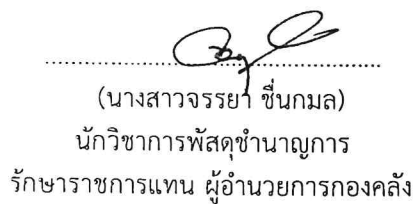 (นางสาวจรรยา ชื่นกมล)
นักวิชาการพัสดุชำนาญการ
รักษาราชการแทน ผู้อำนวยการกองคลัง